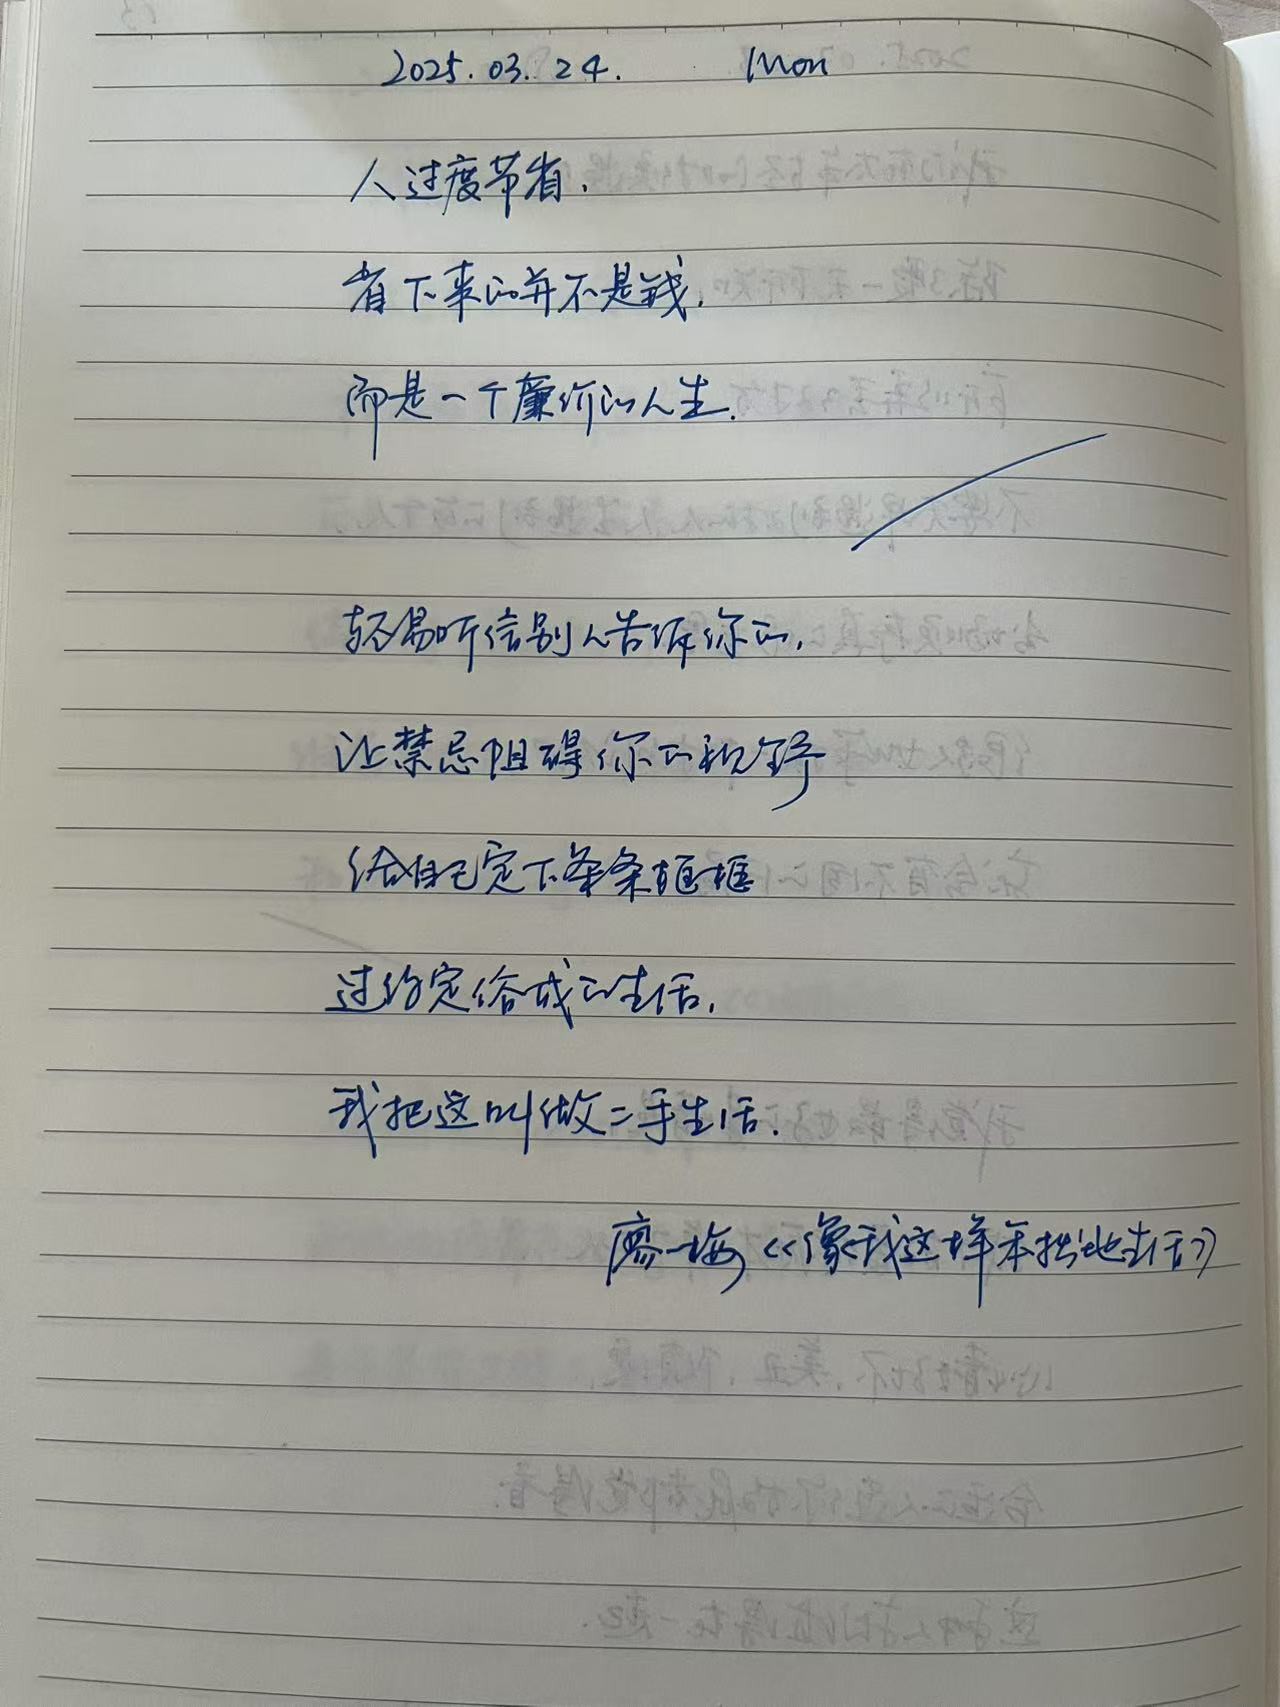 2025.03.24. Mon
人过度节省,
省下来的并不是钱,
而是一个廉价的人生.
轻易听信别人告诉你的,
让禁忌阻碍你的视野
给自己定下条条框框
过约定俗成的生活,
我把这叫做二手生活.
廖一梅《像我这样笨拙地生活》